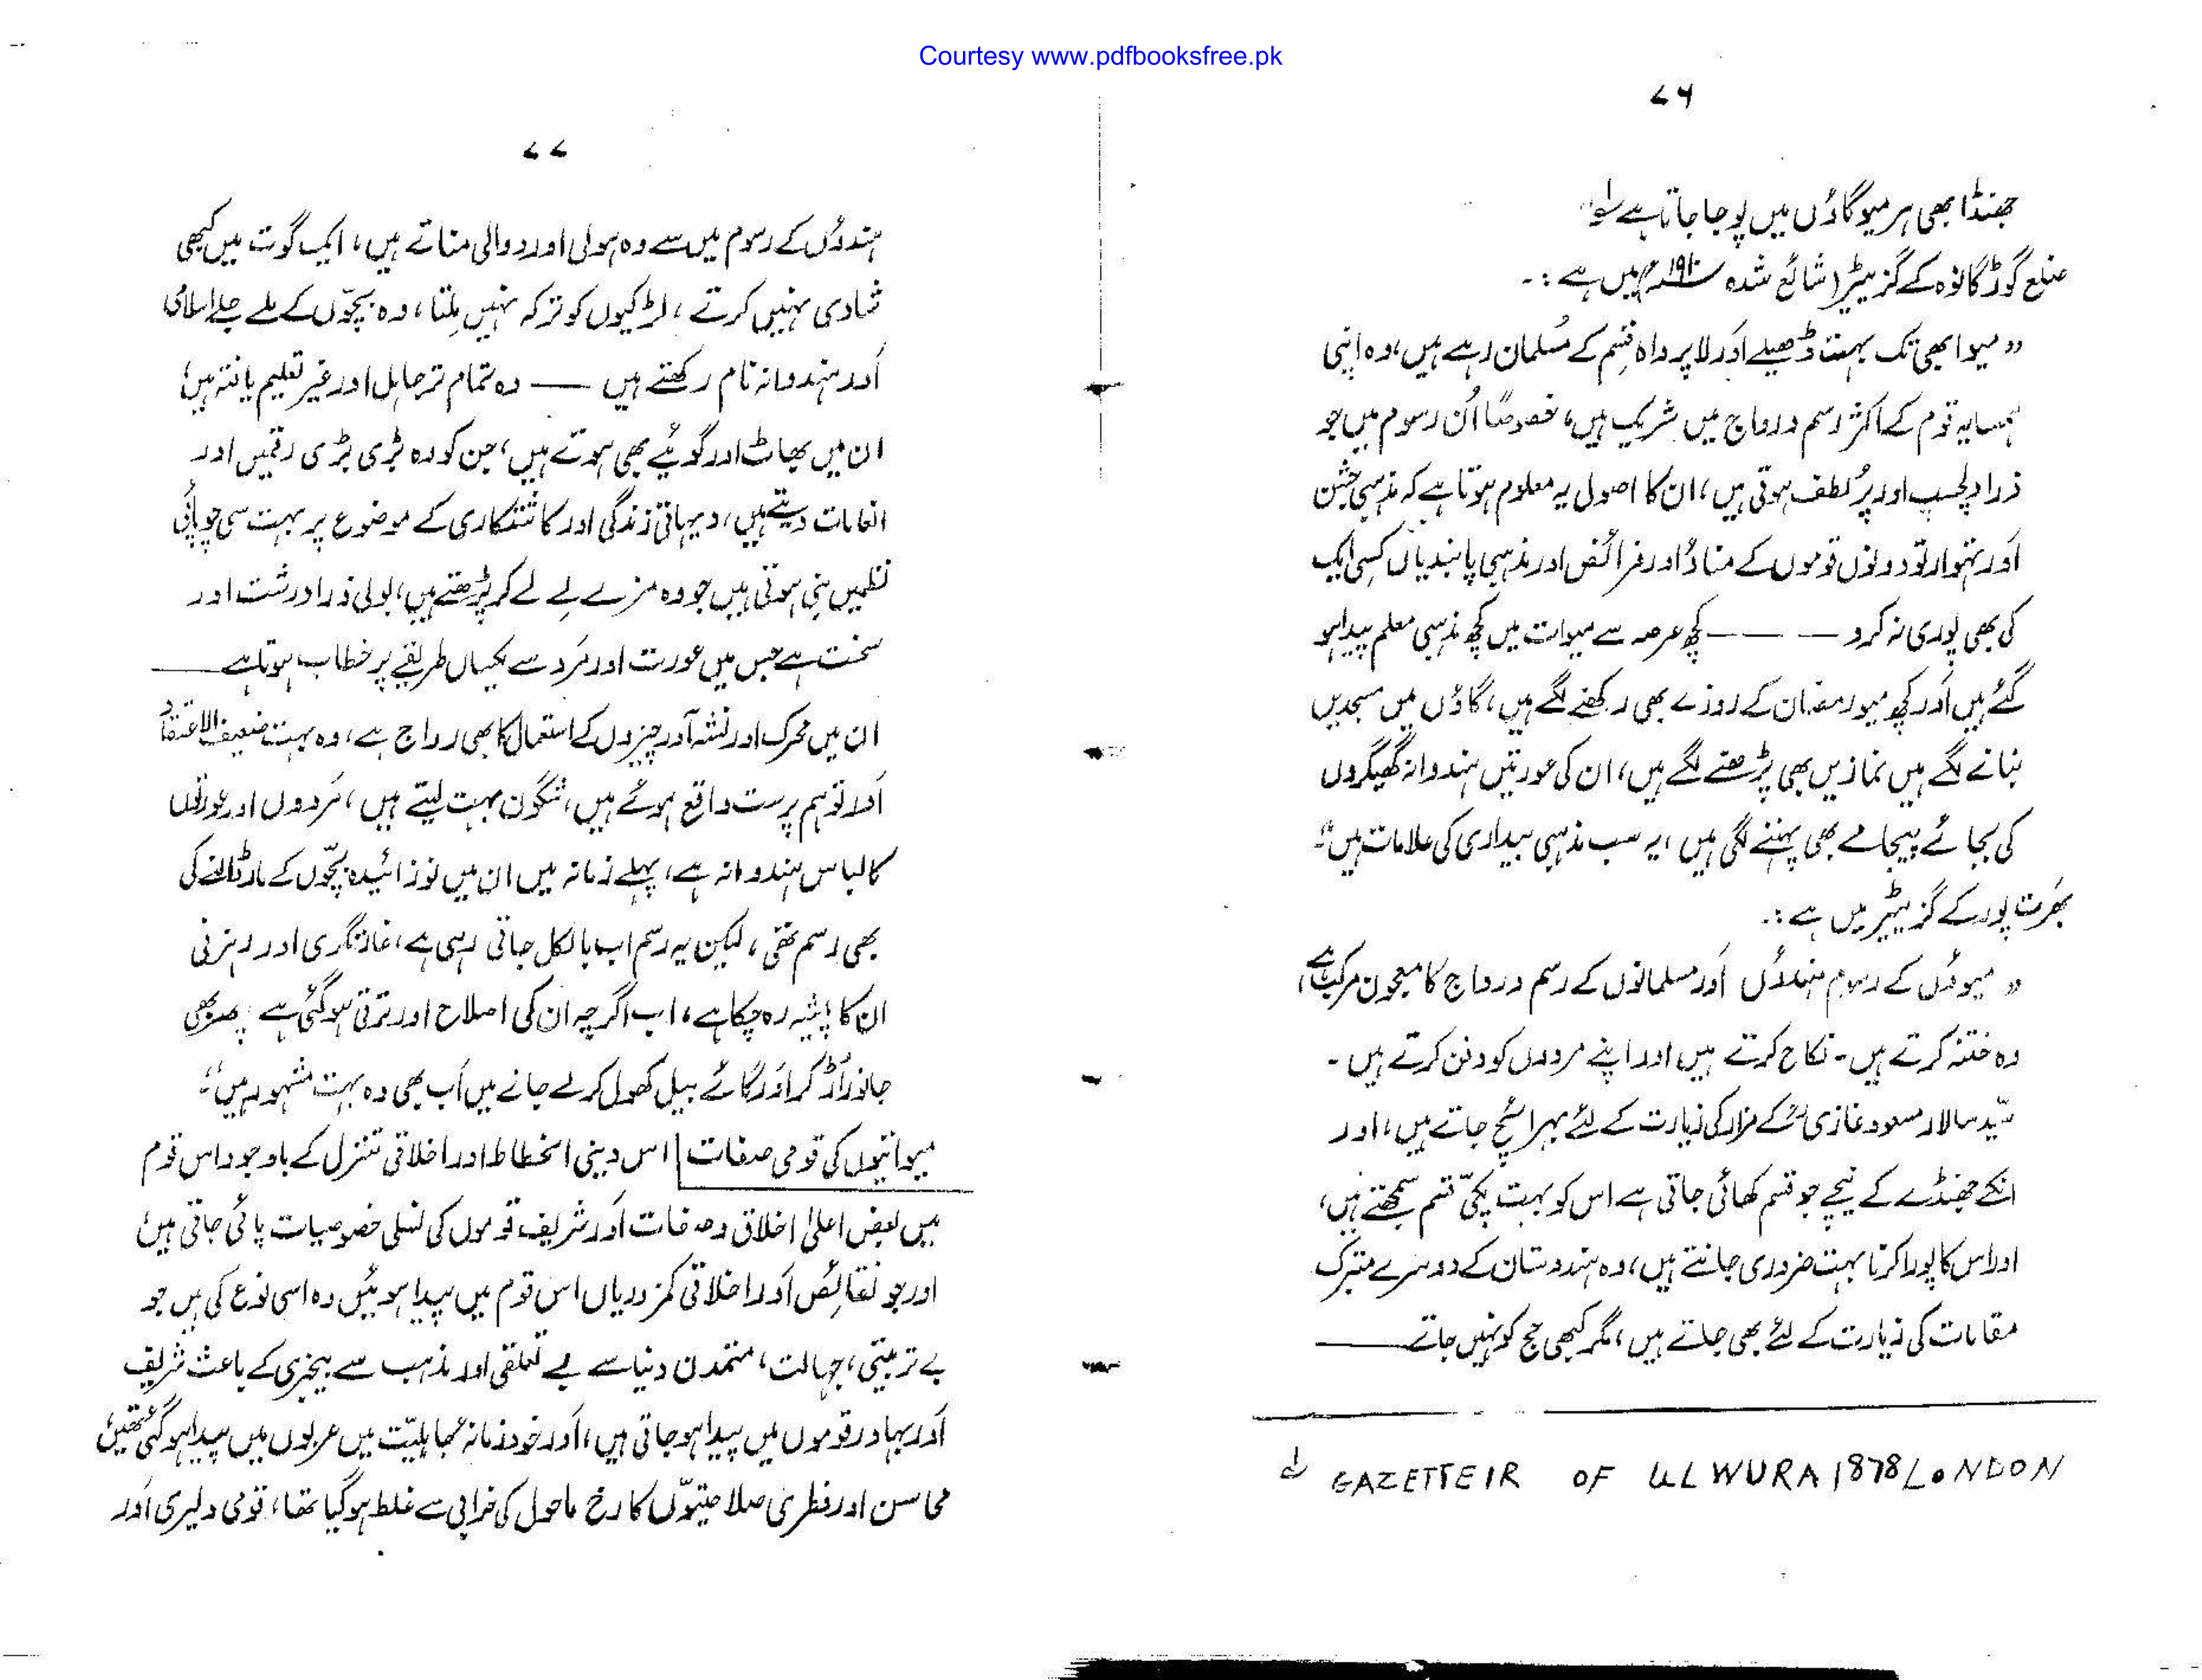 Courtesy www.pdfbooksfree.pk
۷۶
جھنڈا بھی ہر میو گاؤں میں پوجا جاتا ہے لہ"
ضلع گوڑگانوہ کے گزیٹیر (شائع شدہ ۱۹۱۰ء) میں ہے :۔
"میو ابھی تک بہت ڈھیلے اور لاپرواہ قسم کے مسلمان رہے ہیں، وہ اپنی
ہمسایہ قوم کے اکثر رسم ورواج میں شریک ہیں، خصوصًا اُن رسوم میں جو
ذرا دلچسپ اور پُر لطف ہوتی ہیں، ان کا اصول یہ معلوم ہوتا ہے کہ مذہبی جشن
اور تہوار تو دونوں قوموں کے مناؤ اور فرائض اور مذہبی پابندیاں کسی ایک
کی بھی پوری نہ کرو — — — کچھ عرصہ سے میوات میں کچھ مذہبی معلم پیدا ہو
گئے ہیں اور کچھ میو رمضان کے روزے بھی رکھنے لگے ہیں، گاؤں میں مسجدیں
بنانے لگے ہیں نمازیں بھی پڑھنے لگے ہیں، ان کی عورتیں ہندوانہ گھیگروں
کی بجائے پیجامے بھی پہننے لگی ہیں، یہ سب مذہبی بیداری کی علامات ہیں"
بھرت پور کے گزیٹیر میں ہے :۔
"میوؤں کے رسوم ہندوؤں اور مسلمانوں کے رسم ورواج کا معجون مرکب ہے،
وہ ختنہ کرتے ہیں۔ نکاح کرتے ہیں اور اپنے مردوں کو دفن کرتے ہیں۔
سیّد سالار مسعود غازیؒ کے مزار کی زیارت کے لئے بہرائچ جاتے ہیں، اور
انکے جھنڈے کے نیچے جو قسم کھائی جاتی ہے اس کو بہت پکّی قسم سمجھتے ہیں،
اور اس کا پورا کرنا بہت ضروری جانتے ہیں، وہ ہندوستان کے دوسرے متبرک
مقامات کی زیارت کے لئے بھی جاتے ہیں، مگر کبھی حج کو نہیں جاتے ——
لہ GAZETTEIR OF ULWURA 1878 LONDON
۷۷
ہندؤں کے رسوم میں سے وہ ہولی اور دوالی مناتے ہیں، ایک گوت میں کبھی
شادی نہیں کرتے، لڑکیوں کو ترکہ نہیں ملتا، وہ بچّوں کے ملے جلے اسلامی
اور ہندوانہ نام رکھتے ہیں —— وہ تمام تر جاہل اور غیر تعلیم یافتہ ہیں،
ان میں بھاٹ اور گویّے بھی ہوتے ہیں، جن کو وہ بڑی بڑی رقمیں اور
انعامات دیتے ہیں، دیہاتی زندگی اور کاشتکاری کے موضوع پر بہت سی چوپائی
نظمیں بنی ہوتی ہیں جو وہ مزے لے لے کر پڑھتے ہیں، بولی ذرا درشت اور
سخت ہے جس میں عورت اور مرد سے یکساں طریقے پر خطاب ہوتا ہے ——
ان میں محرک اور نشہ آور چیزوں کے استعمال کا بھی رواج ہے، وہ بہت ضعیف الاعتقاد
اور توہم پرست واقع ہوئے ہیں، شگون بہت لیتے ہیں، مردوں اور عورتوں
کا لباس ہندوانہ ہے، پہلے زمانہ میں ان میں نوزائیدہ بچّوں کے مار ڈالنے کی
بھی رسم تھی، لیکن یہ رسم اب بالکل جاتی رہی ہے، غارتگری اور رہزنی
ان کا پیشہ رہ چکا ہے، اب اگرچہ ان کی اصلاح اور ترقی ہو گئی ہے پھر بھی
جانور اُڑا کر اور گائے بیل کھول کر لے جانے میں اب بھی وہ بہت مشہور ہیں"
میواتیوں کی قومی صفات | اس دینی انحطاط اور اخلاقی تنزل کے باوجود اس قوم
میں بعض اعلیٰ اخلاق وصفات اور شریف قوموں کی نسلی خصوصیات پائی جاتی ہیں،
اور جو نقائص اور اخلاقی کمزوریاں اس قوم میں پیدا ہوئیں وہ اسی نوع کی ہیں جو
بے تربیتی، جہالت، متمدن دنیا سے بے تعلقی اور مذہب سے بیخبری کے باعث شریف
اور بہادر قوموں میں پیدا ہو جاتی ہیں، اور خود زمانۂ جاہلیّت میں عربوں میں پیدا ہو گئی تھیں،
محاسن اور فطری صلاحیتوں کا رخ ماحول کی خرابی سے غلط ہو گیا تھا، قومی دلیری اور